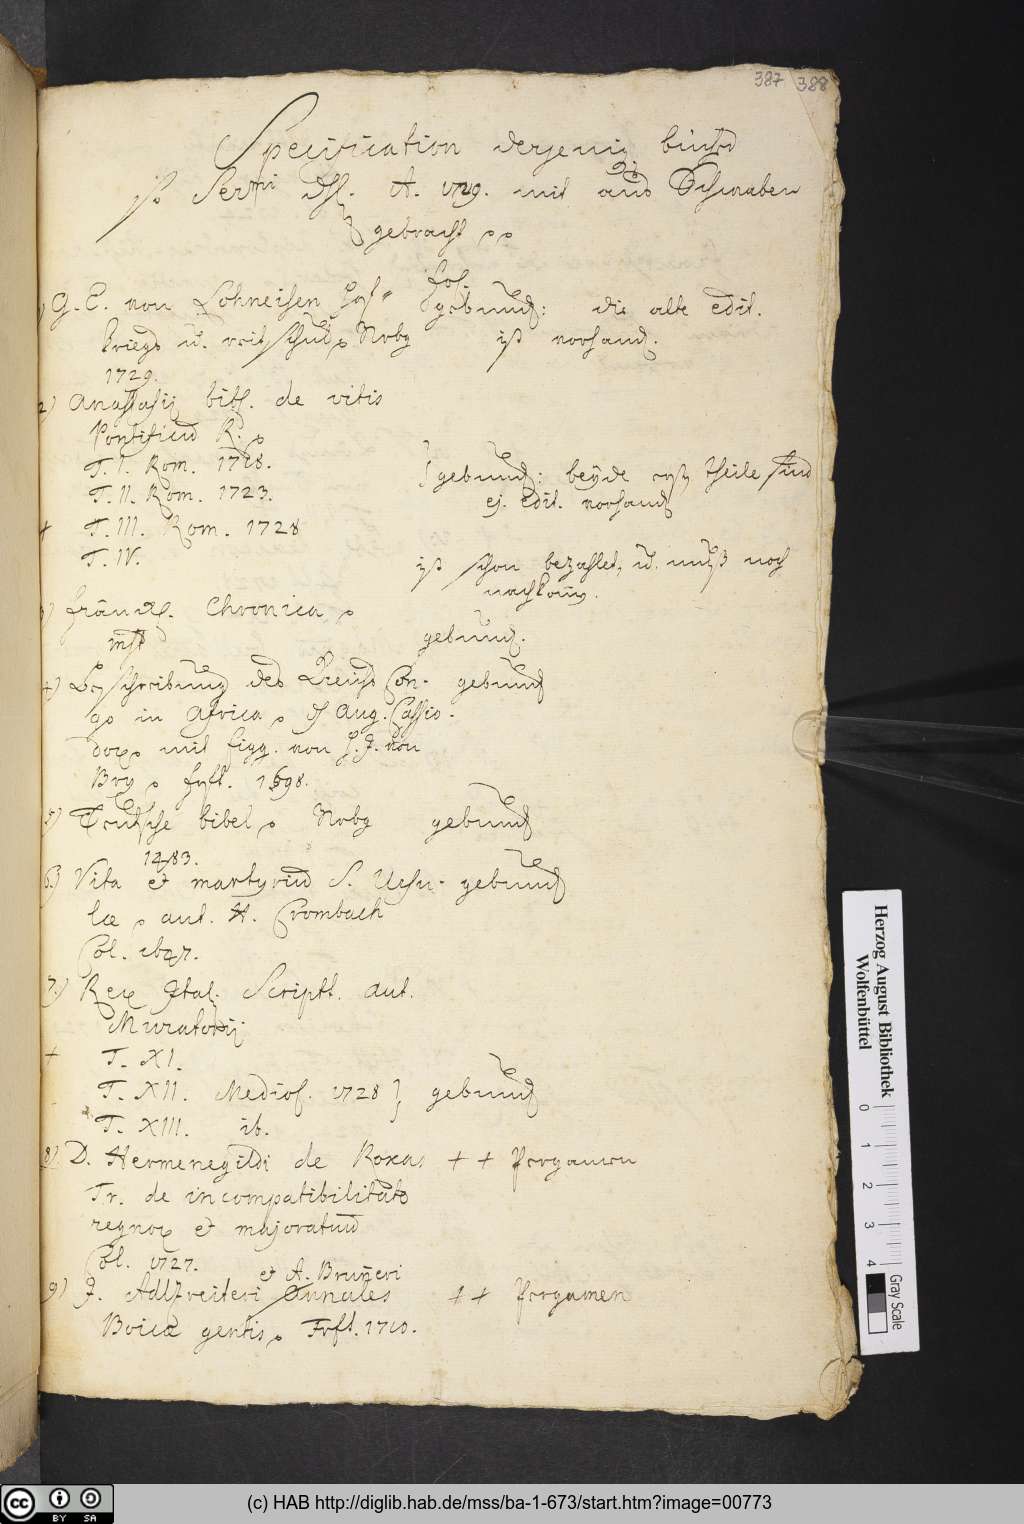 387 388
Specification derjenig bücher
so Sermi dhl. A. 1729. mit aus Schwaben
gebracht
fol.
1) G. E. von Löhneisen Hof= gebund: die alte edit.
kriegs u. reitschul, Nrbg ist vorhand.
1729.
2) Anastasij bibl. de vitis
Pontificum R.
T. I. Rom. 1718. } gebund: beyde erst theile sind
T. II. Rom. 1723. ej. edit. vorhand
+ T. III. Rom. 1728
T. IV. ist schon bezahlet, u. muß noch
nachkom.
3) fränck. Chronica
mst gebund.
4) Beschreibung des Königr. Con- gebund
go in Africa, Aug. Cassio-
doro, mit figg. von J. J. von
Bry, frft. 1698.
5) Teutsche bibel, Nrbg gebund
1483.
6.) Vita et martyrium S. Ursu- gebund
læ, aut. H. Crombach
Col. 1647.
7.) Rer. Ital. Scriptt. aut.
Muratorij
+ T. XI.
T. XII. Mediol. 1728 } gebund
T. XIII. ib.
8) D. Hermenegildi de Roxas + + Pergamen
Tr. de incompatibilitate
regnor. et majoratuum
Col. 1727.
et A. Bruneri
9) J. Adlzreiteri Annales + + Pergamen
Boicæ gentis, Frft. 1710.
Herzog August Bibliothek
Wolfenbüttel
0 1 2 3 4
Gray Scale
cc BY SA
(c) HAB http://diglib.hab.de/mss/ba-1-673/start.htm?image=00773